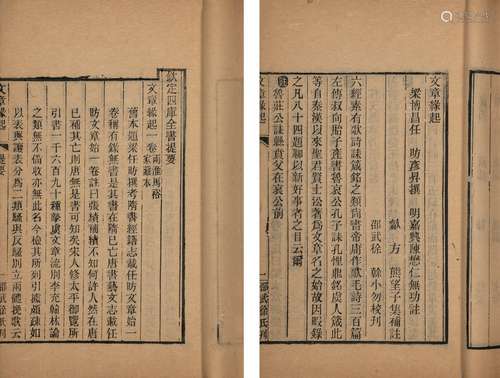 欽定四庫全書提要
文章緣起一卷 兩淮馬裕家藏本
舊本題梁任昉撰考隋書經籍志載任昉文章始一
卷稱有錄無書是其書在隋已亡唐書藝文志載任
昉文章始一卷註曰張績補績不知何許人然在唐
已補其亡則唐無是書可知矣宋人修太平御覽所
引書一千六百九十種摯虞文章流別李充翰林論
之類無不備收亦無此名今檢其所列引據頗疎如
以表與讓表分為二類騷與反騷別立兩體挽歌云
文章緣起 提要 一 邵武徐氏刊
文章緣起
梁博昌任 昉彥昇撰 明嘉興陳懋仁無功註
歙 方 熊望子集補註
邵武徐 榦小勿校刊
六經素有歌詩誄箴銘之類尚書帝庸作歌毛詩三百篇
左傳叔向貽子產書魯哀公孔子誄孔悝鼎銘虞人箴此
等自秦漢以來聖君賢士沿著為文章名之始故因暇錄
之凡八十四題聊以新好事者之目云爾
註 魯莊公誄縣賁父在哀公前
文章緣起 一 邵武徐氏刊